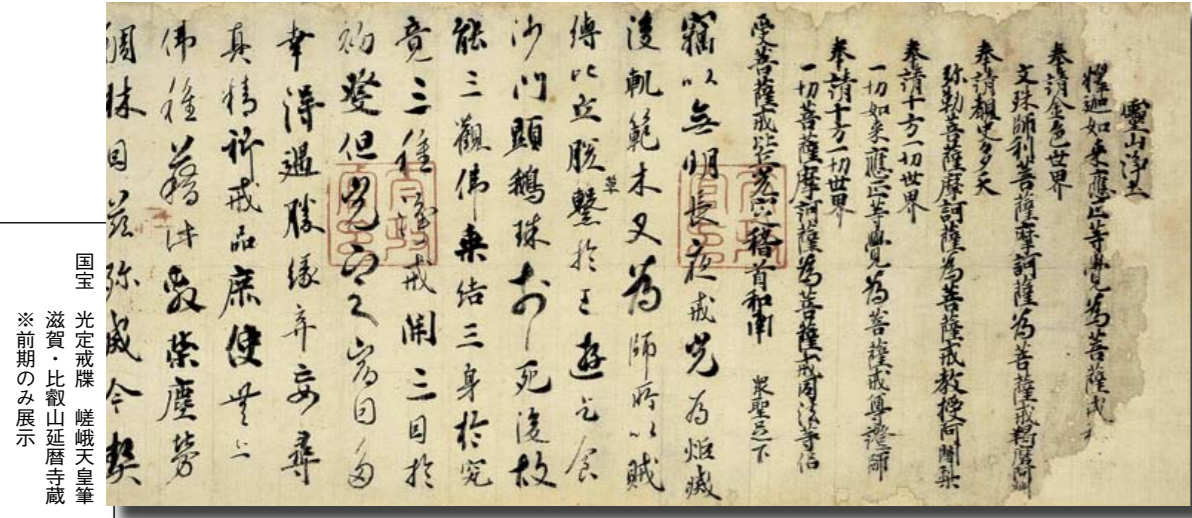 靈山浄土
釋迦如来應正等覺為菩薩戒和
奉請金色世界
文殊師利菩薩摩訶薩為菩薩戒羯磨阿闍
奉請覩史多天
弥勒菩薩摩訶薩為菩薩戒教授阿闍梨
奉請十方一切世界
一切如来應正等覺為菩薩戒尊證師
奉請十方一切世界
一切菩薩摩訶薩為菩薩戒同法等侶
受菩薩戒比丘光定稽首和南 衆聖足下
竊以無明長夜戒光為炬滅
後軌範木叉為師所以賊
縛比丘脱繫於草王遊乞食
沙門顕鵝珠於死後故
能三觀佛乗結三身於究
竟三種浄戒開三因於
初發但光定宿因多
幸得遇勝縁弃妄尋
真精祈戒品庶使無上
佛種藉此敷榮塵勞
稠林因茲殄滅今契
国宝　光定戒牒　嵯峨天皇筆
滋賀・比叡山延暦寺蔵
※前期のみ展示